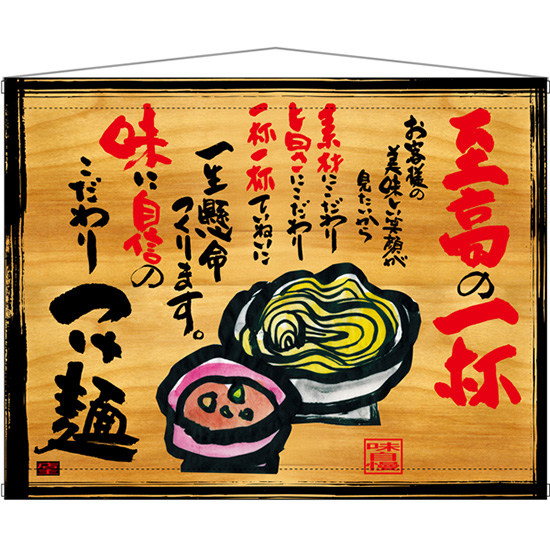 至高の一杯
お客様の
美味しい笑顔が
見たいから
素材にこだわり
旨さにこだわり
一杯一杯ていねいに
一生懸命
つくります。
味に自信の
こだわり
つけ麺
味自慢